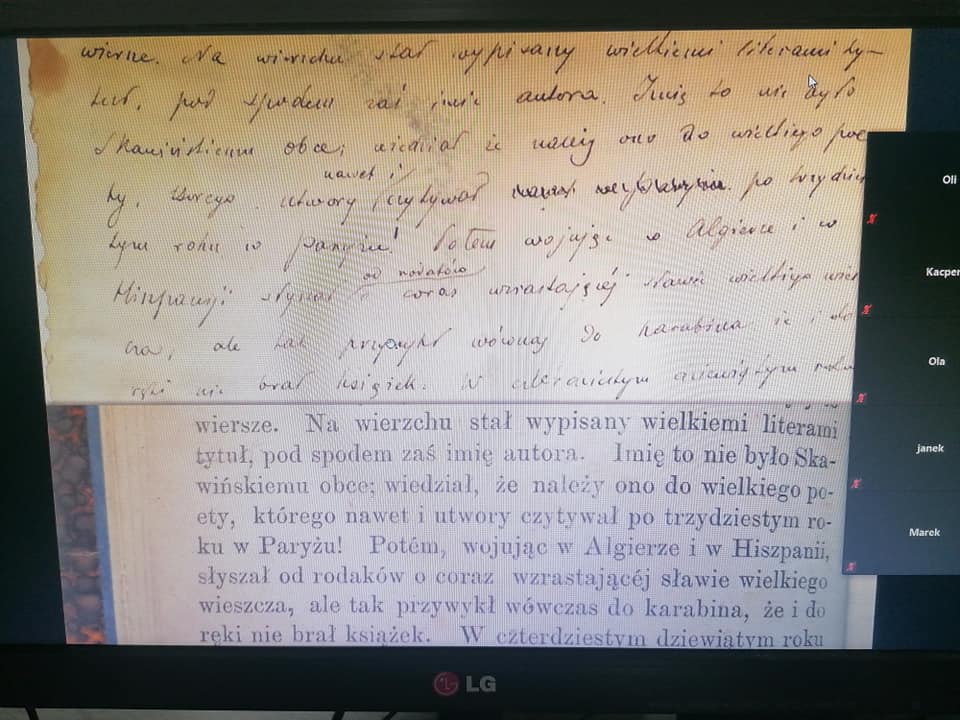 wiersze. Na wierzchu stał wypisany wielkiemi literami ty-
tuł, pod spodem zaś imię autora. Imię to nie było
Skawińskiemu obce; wiedział że należy ono do wielkiego poe
nawet i
ty, którego utwory czytywał po trzydzies
tym roku w Paryżu! Potem wojując w Algierze i w
od rodaków
Hiszpanji słyszał o coraz wzrastającéj sławie wielkiego wiesz
cza, ale tak przywykł wówczas do karabina że i do
ręki nie brał książek. W czterdziestym dziewiątym roku
wiersze. Na wierzchu stał wypisany wielkiemi literami
tytuł, pod spodem zaś imię autora. Imię to nie było Ska-
wińskiemu obce; wiedział, że należy ono do wielkiego po-
ety, którego nawet i utwory czytywał po trzydziestym ro-
ku w Paryżu! Potém, wojując w Algierze i w Hiszpanii,
słyszał od rodaków o coraz wzrastającéj sławie wielkiego
wieszcza, ale tak przywykł wówczas do karabina, że i do
ręki nie brał książek. W czterdziestym dziewiątym roku
Oli
Kacper
Ola
janek
Marek
LG